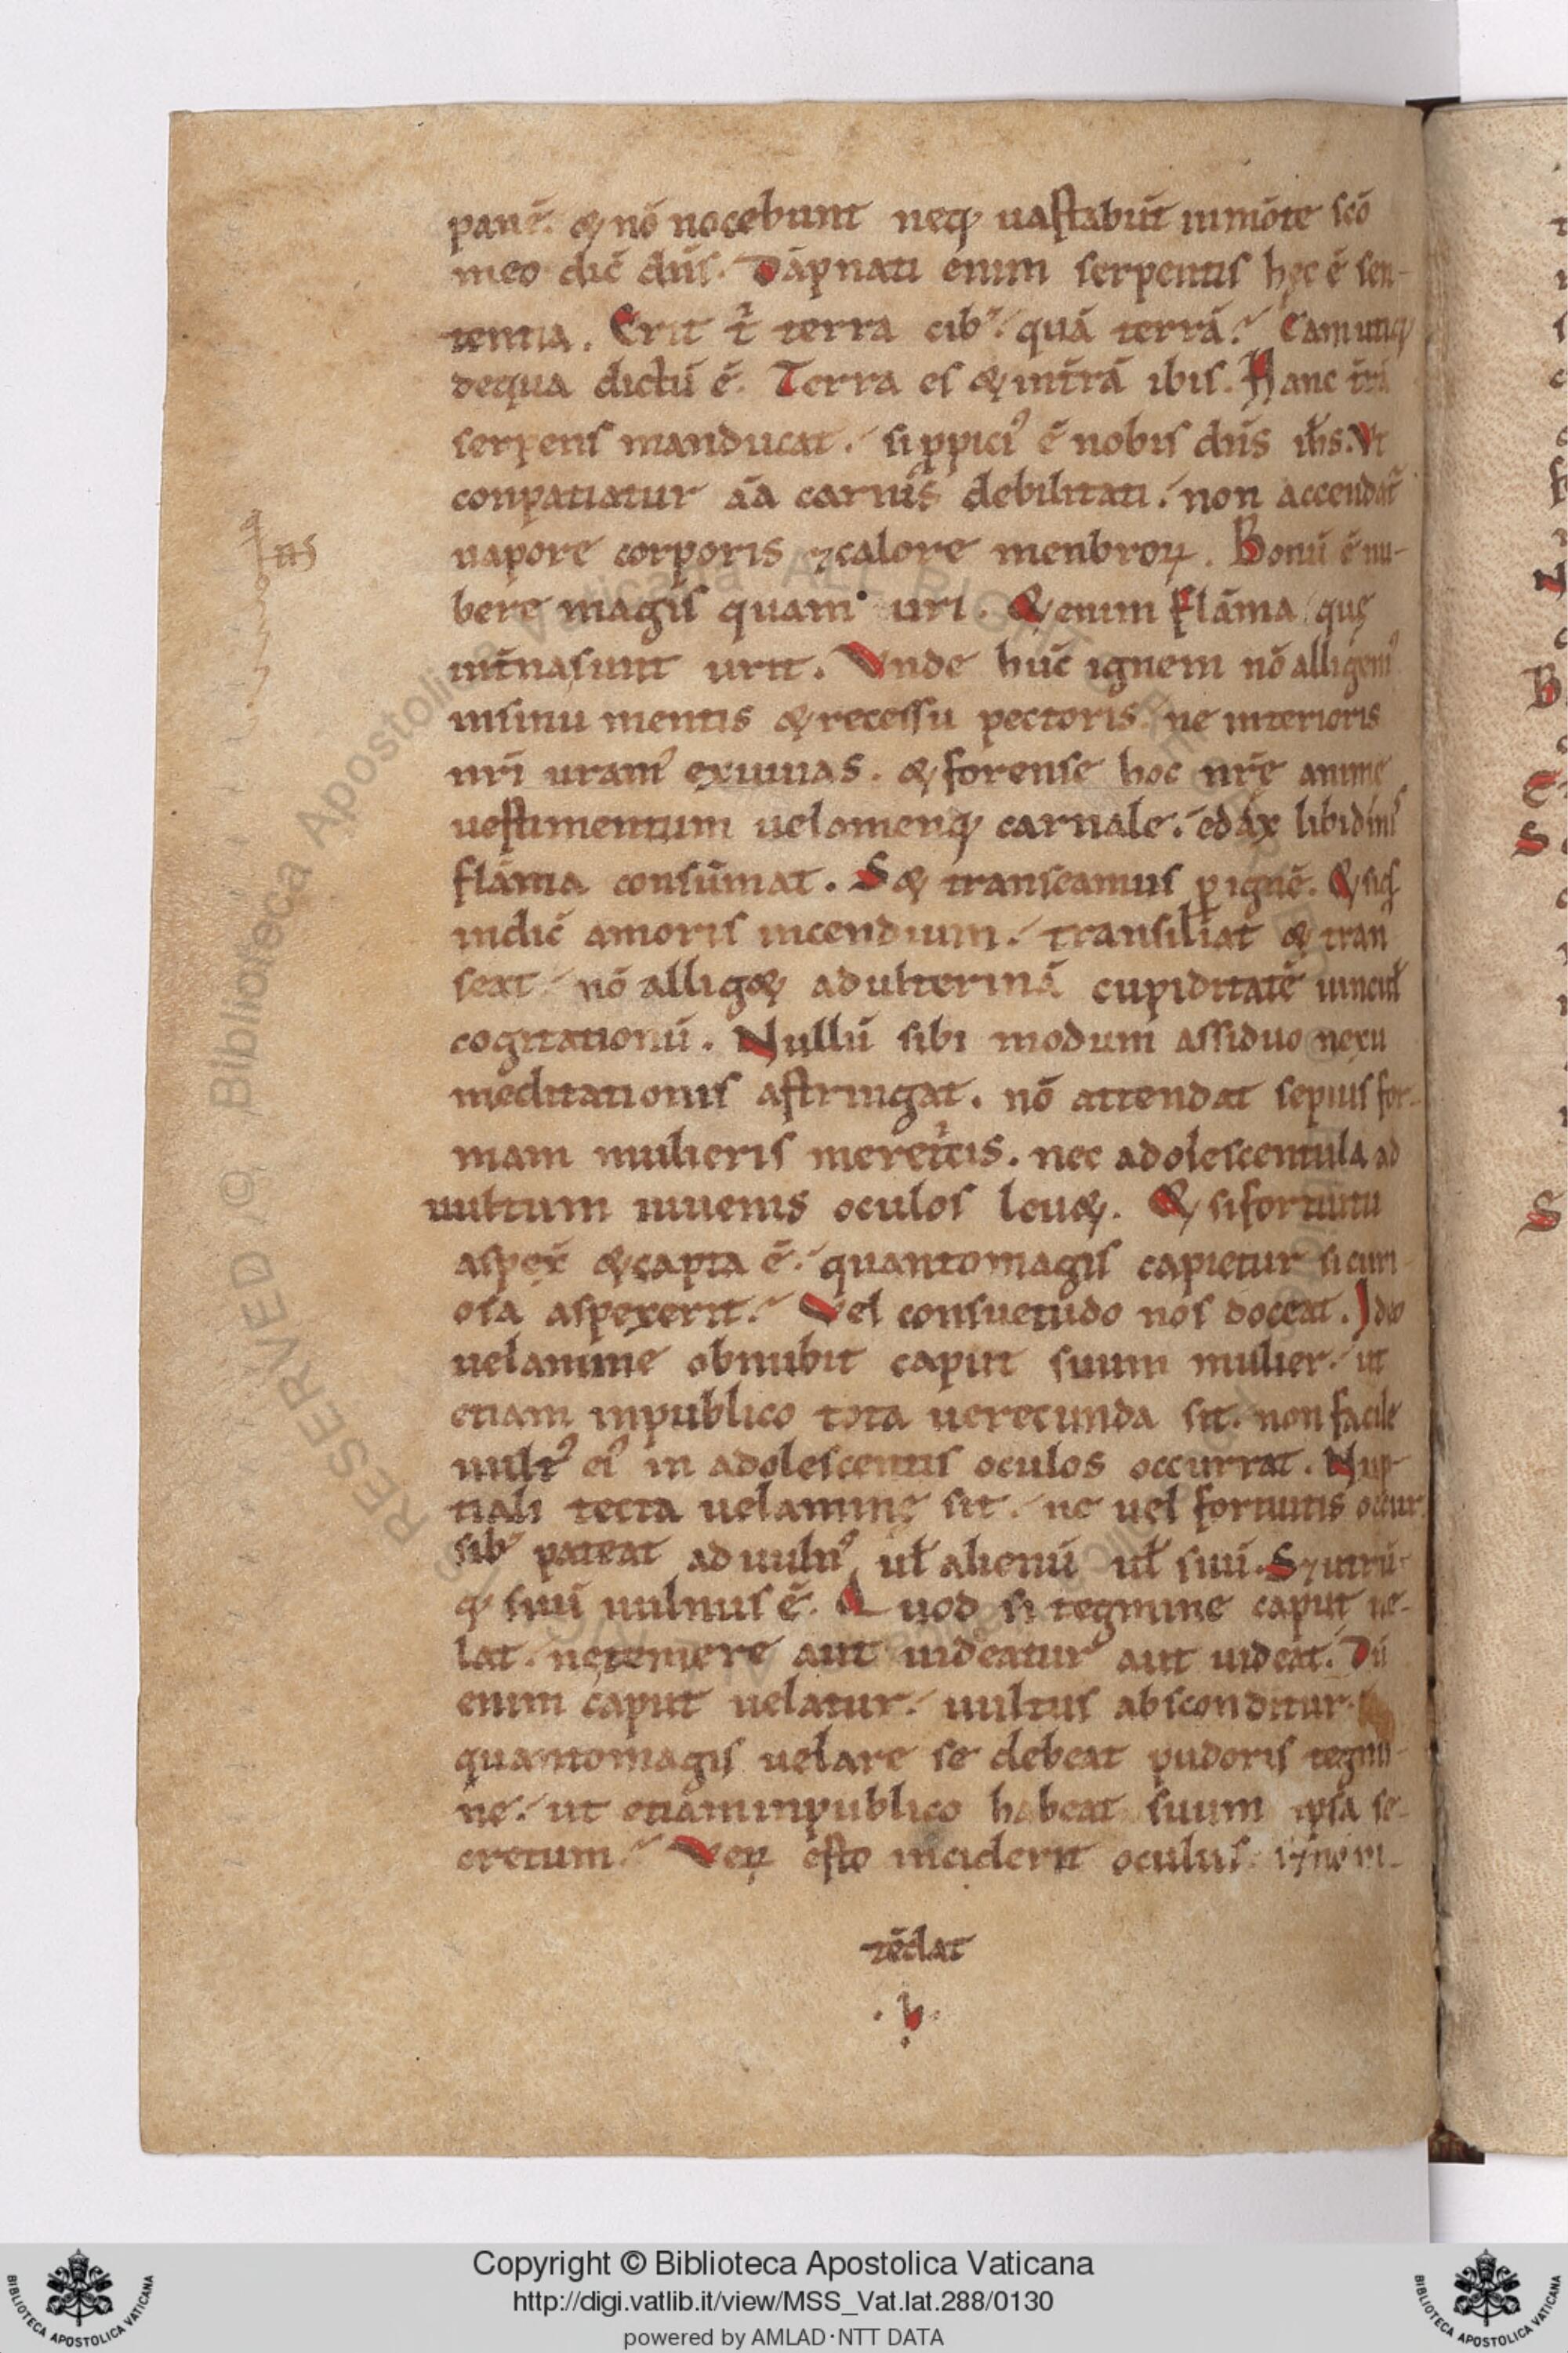 panē. & nō nocebunt neq; uastabūt inmōte scō
meo dic̄ dn̄s. Dāpnati enim serpentis hęc ē sen-
tentia. Erit t̄ terra cib᷒. quā terrā? Eam utiq;
dequa dictū ē. Terra es & int̄rā ibis. Hanc t̄rā
serpens manducat. si ppici᷒ ē nobis dn̄s ih̄s. Vt
conpatiatur āa carnis debilitati. non accendat̄
uapore corporis ⁊ calore menbroꝝ. Bonū ē nu-
bere magis quam uri. & enim flāma quę
int̄na sunt urit. Vnde hūc ignem nō alligem᷒
insinu mentis & recessu pectoris. ne interioris
nr̄i uram᷒ exuuias. & forense hoc nr̄ę anime
uestimentum uelomenq; carnale. edax libidinis
flāma consūmat. S& transeamus ꝑ ignē. & siq̄s
indic̄ amoris incendium. transiliat & tran
seat. nō allig& adulterinā cupiditatē uincul̄
cogitationū. Nullū sibi modum assiduo nexu
meditationis astringat. nō attendat sepius for-
mam mulieris meretricis. nec adolescentula ad
uultum iuuenis oculos leu&. & si fortuitu
aspex̄ & capta ē. quantomagis capietur si curi
osa aspexerit. Vel consuetudo nos doceat. Ideo
uelamine obnubit caput suum mulier. ut
etiam inpublico tota uerecunda sit. non facile
uult᷒ ei᷒ in adolescentis oculos occurrat. Nup-
tiali tecta uelamine sit. ne uel fortuitis occur
sib᷒ pateat ad uuln᷒ ul̄ alienū ul̄ suū. S; utrū-
q; suū uulnus ē. Quod si tegmine caput ue-
lat. ne temere aut uideatur aut uideat. Dū
enim caput uelatur. uultus absconditur.
quantomagis uelare se debeat pudoris tegmi-
ne. ut etiam inpublico habeat suum ipsa se-
cretum. Veꝝ esto inciderit oculus.
tēdat